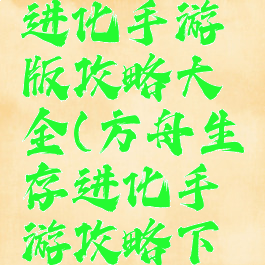 进化手游
版攻略大
全(方舟生
存进化手
游攻略下